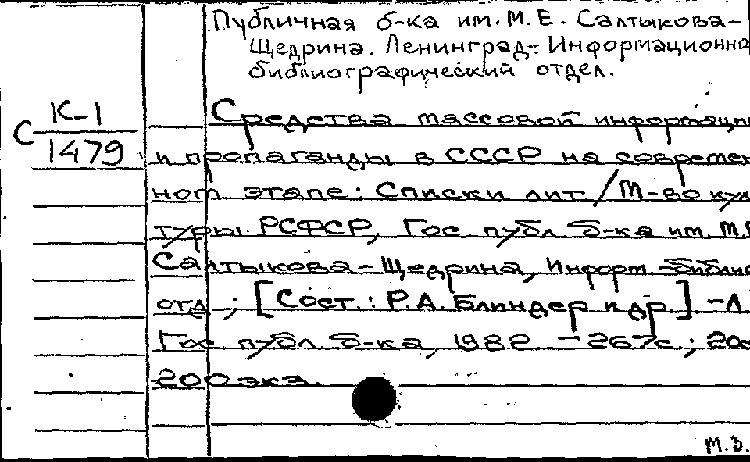 Публичная б-ка им. М. Е. Салтыкова-
Щедрина. Ленинград. Информационно
библиографический отдел.
К-1
С
1479
Средства массовой информации
и пропаганды в СССР на современ
ном этапе: Списки лит / М-во куль
туры РСФСР, Гос публ б-ка им. М.Е
Салтыкова-Щедрина, Информ-библио
отд ; [Сост.: Р.А. Блиндер и др.] -Л
Гос публ б-ка, 1982 -267с ; 20с
200 экз.
М.В.